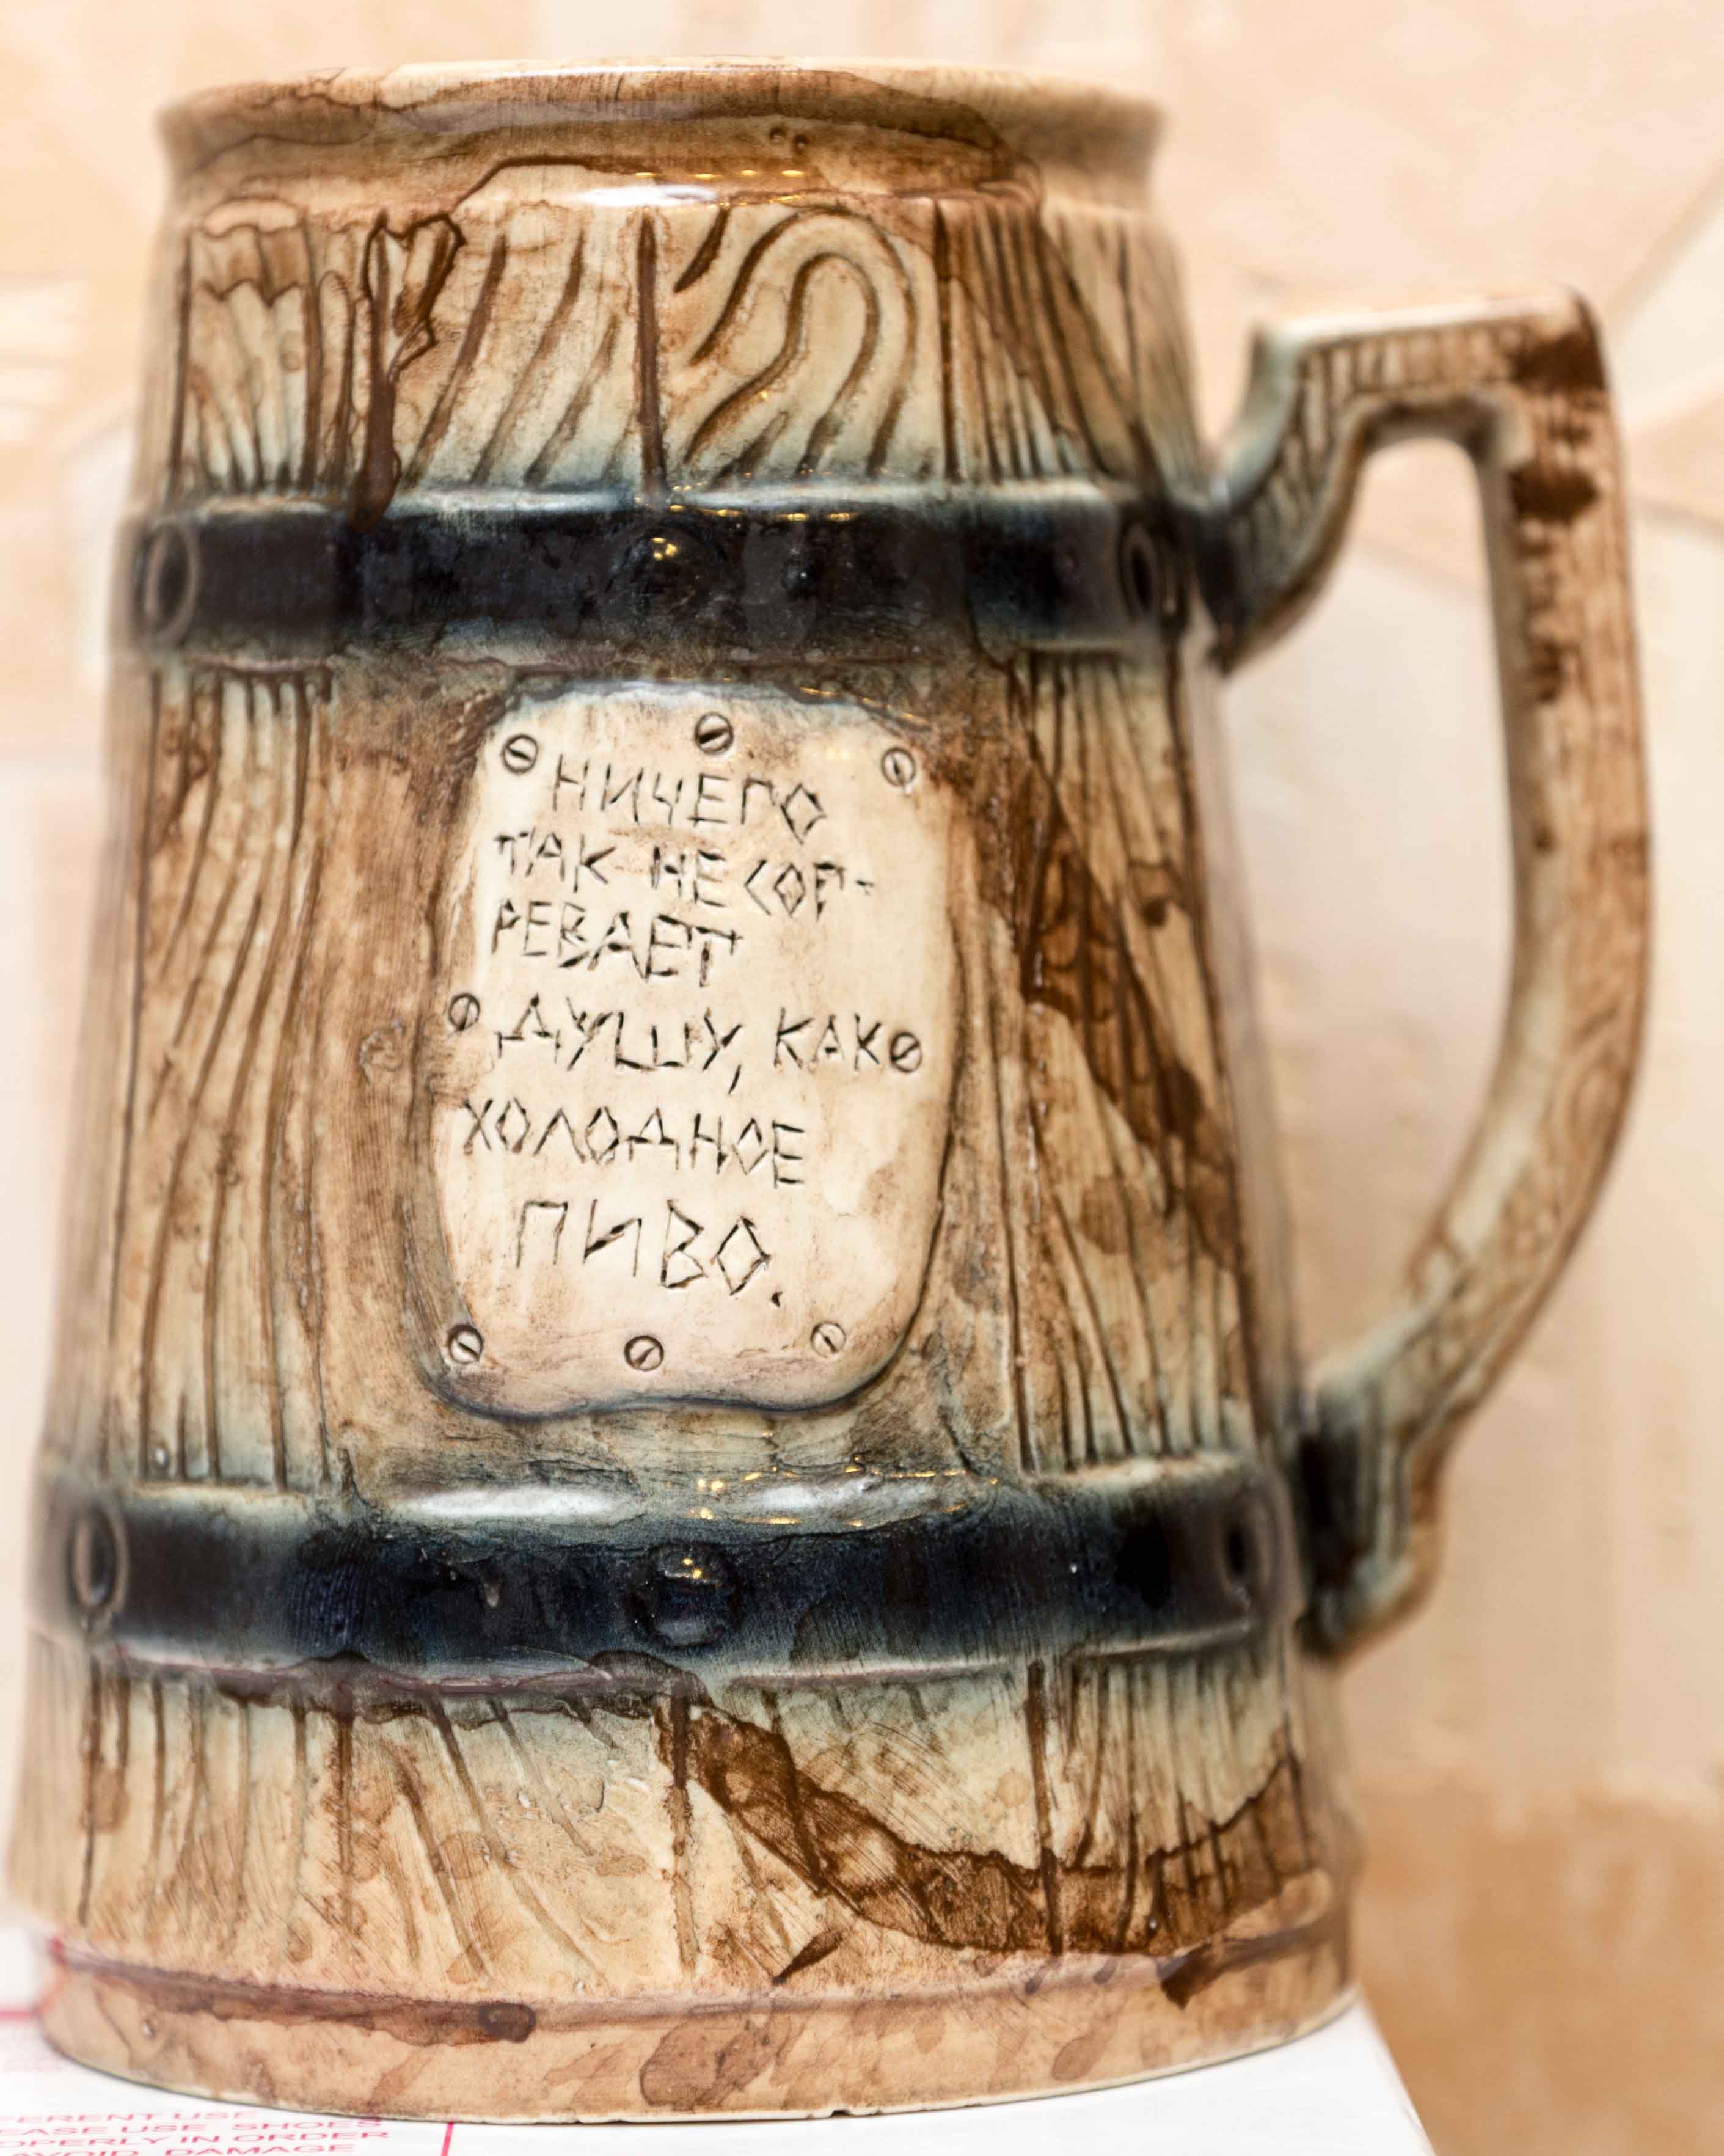 НИЧЕГО
ТАК НЕ СОГ-
РЕВАЕТ
ДУШУ, КАК
ХОЛОДНОЕ
ПИВО.
FERENT USE
EASE USE SHOES
OPERLY IN ORDER
AVOID DAMAGE